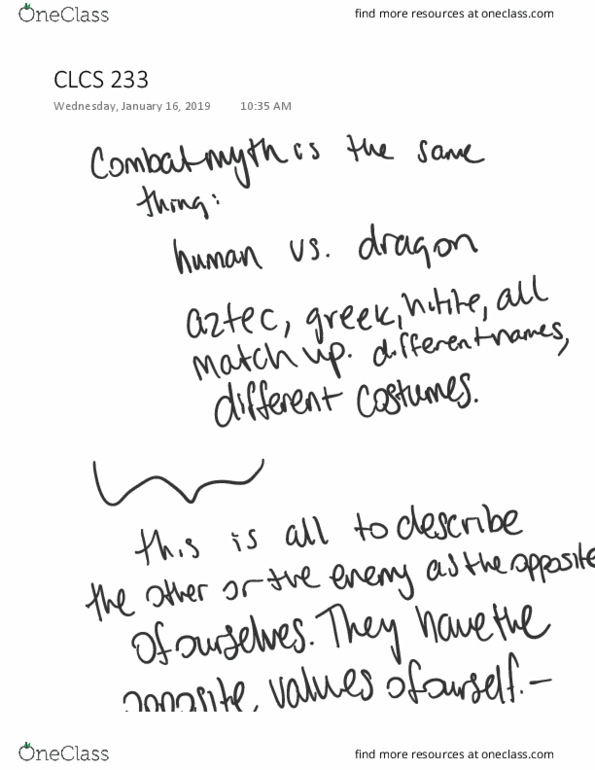 OneClass
find more resources at oneclass.com
CLCS 233
Wednesday, January 16, 2019 10:35 AM
Combat myth is the same
thing:
human vs. dragon
aztec, greek, hitite, all
match up. different names,
different costumes.
this is all to describe
the other or the enemy as the opposite
of ourselves. They have the
opposite, values of ourself. –
OneClass
find more resources at oneclass.com